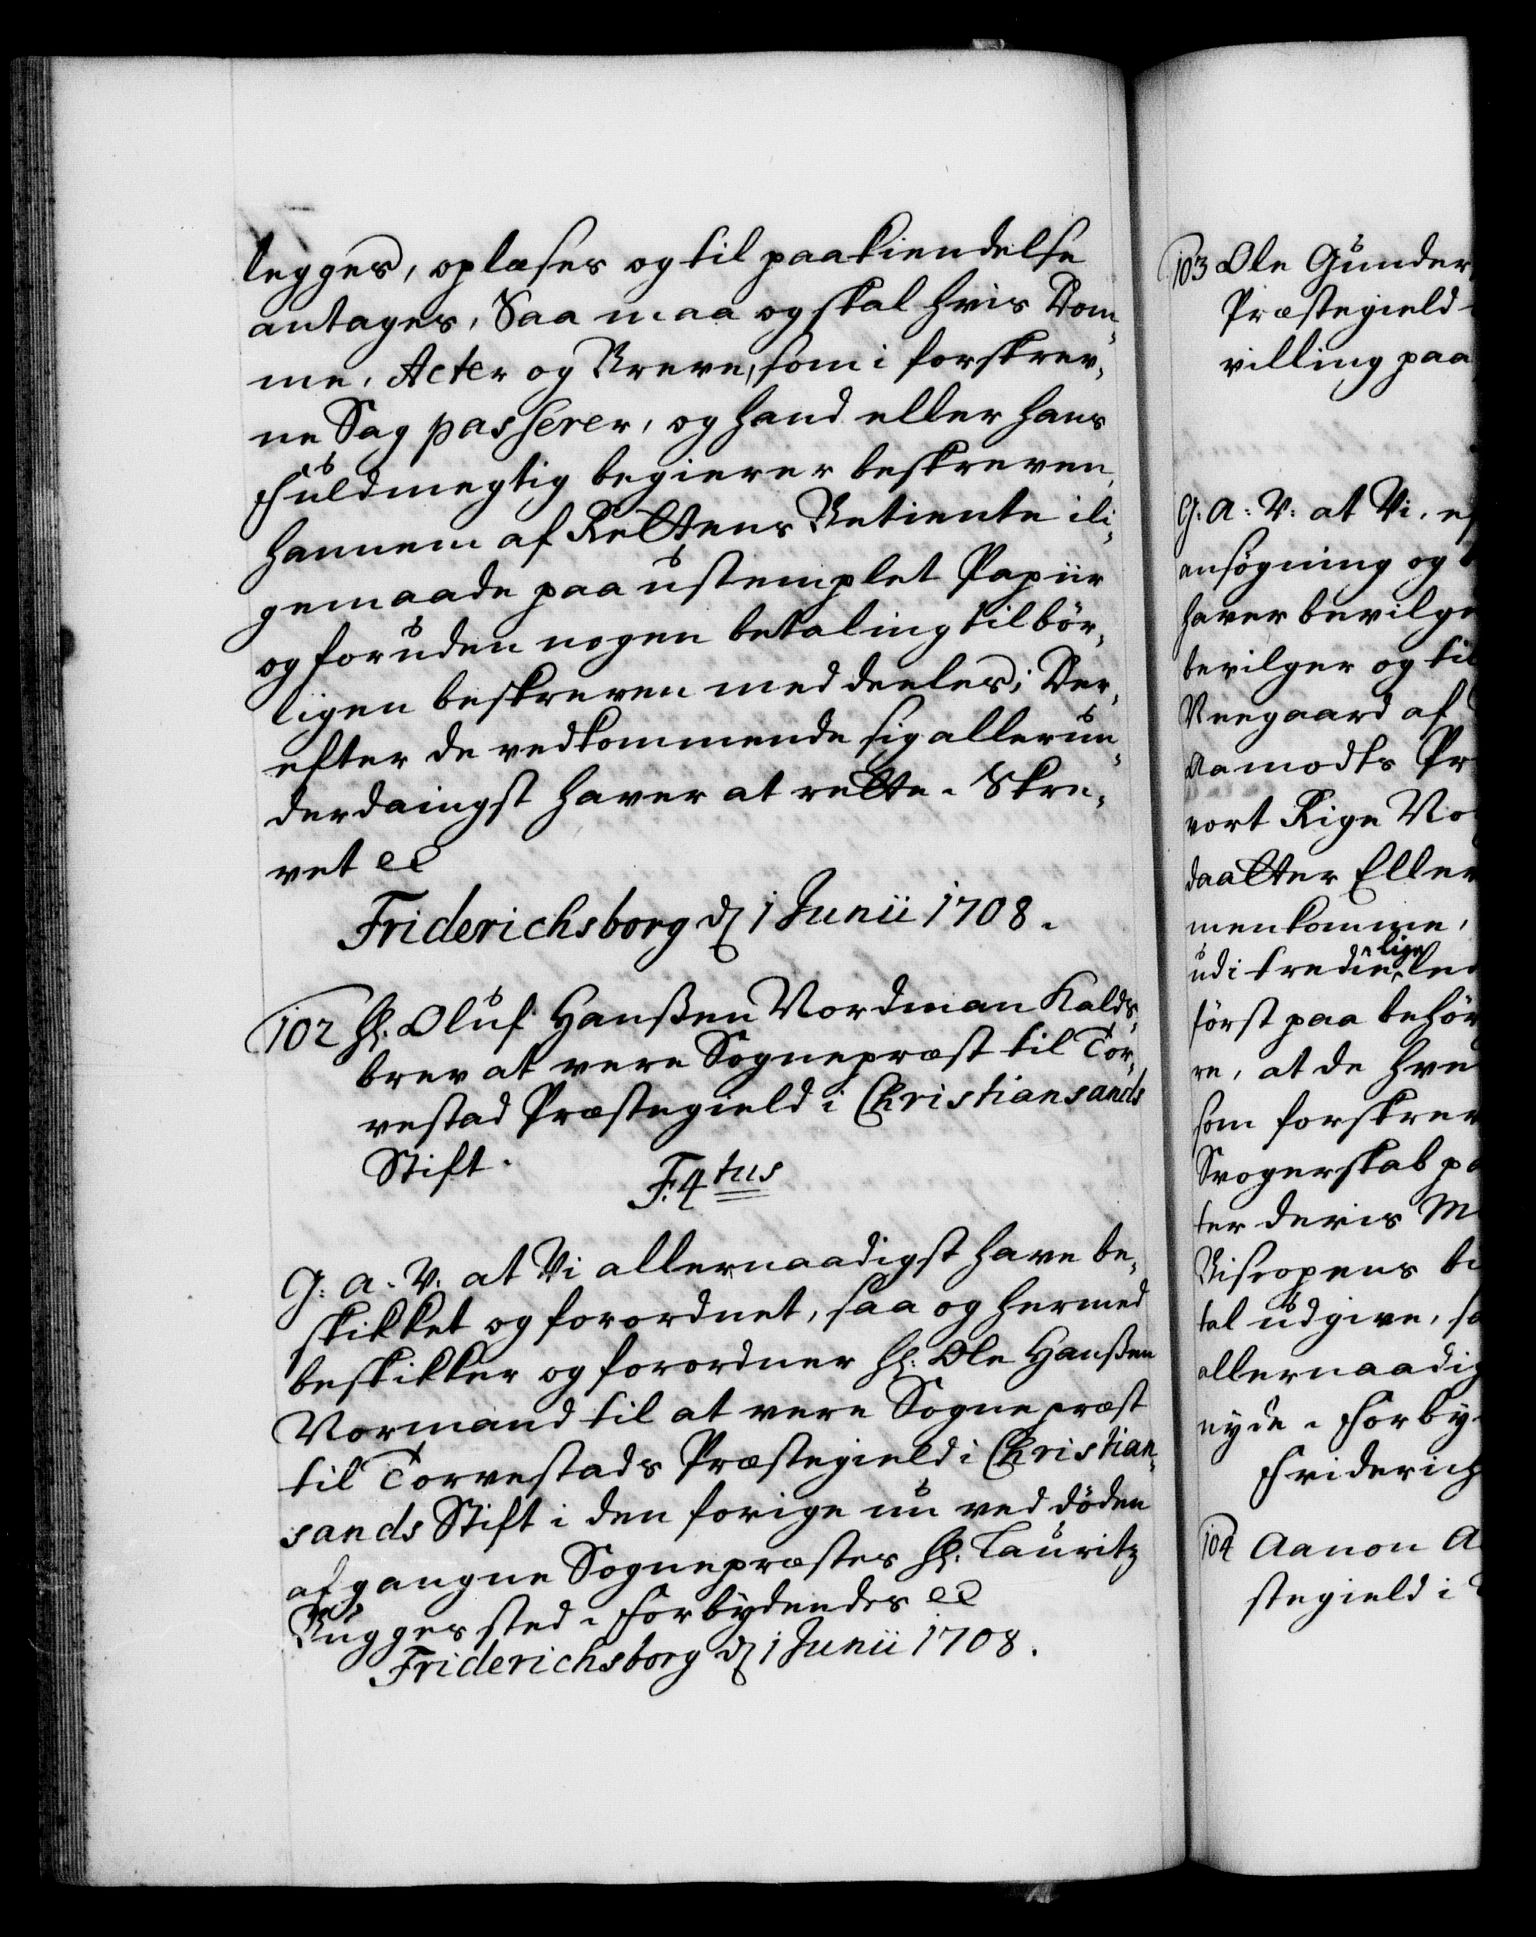 legges, oplæses og til paakiendelse
antages, Saa maa og skal hvis Dom-
me, Acter og Breve, som i forskrev-
ne Sag passerer, og hand eller hans
Fuldmegtig begierer beskreven,
hannem af Rettens Betiente ili-
gemaade paa ustemplet Papiir
og foruden nogen betaling tilbör-
ligen beskreven meddeeles; Der-
efter de vedkommende sig allerun-
derdanigst haver at rette. Skre-
vet etc
Friderichsborg d. 1 Junii 1708.
102 Hr. Oluf Hanßen Nordman Kalds-
brev at vere Sognepræst til Tor-
vestad Præstegield i Christiansands
Stift.
F. 4tus
G: A. V. at Vi allernaadigst have be-
skikket og forordnet, saa og hermed
beskikker og forordner Hr. Ole Hanßen
Normand til at vere Sognepræst
til Torvestads Præstegield i Christian-
sands Stift i den forige nu ved döden
afgangne Sognepræstes Hr. Lauritz
Bugges sted. Forbydendes etc
Friderichsborg d. 1 Junii 1708.
103 Ole Gunder
Præstegield
villing paa
G. A: V: at Vi, ef
ansögning og
haver bevilge
bevilger og til
Neegaard af
Aamodts Pr
vort Rige No
daatter Ellen
menkomme,
udi tredie lige led
först paa behör
re, at de hve
som forskrev
Svogerskab pa
ter deris M
Bisropens be
tal udgive, so
allernaadig
nyde. Forby
Friderich
104 Aanon A
stegield i